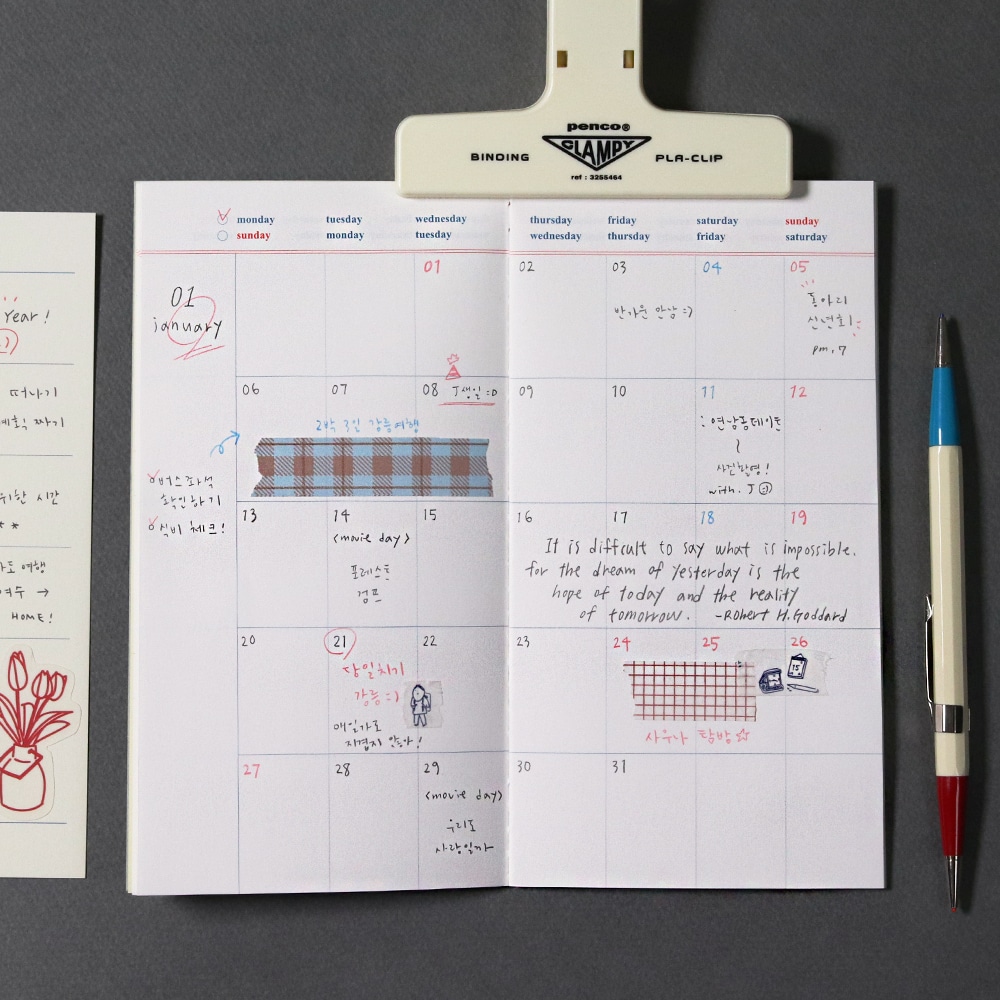 penco®
CLAMPY
BINDING
PLA-CLIP
ref : 3255464
monday tuesday wednesday thursday friday saturday sunday
sunday monday tuesday wednesday thursday friday saturday
01
january
01 02 03 04 05
반가운 만남 :)
동아리
신년회!
pm. 7
06 07 08 09 10 11 12
J생일 :D
2박 3일 강릉여행
버스좌석
확인하기
식비 체크!
연남동데이트
사진촬영!
with. J :)
13 14 15 16 17 18 19
<movie day>
포레스트
검프
It is difficult to say what is impossible.
for the dream of yesterday is the
hope of today and the reality
of tomorrow. -Robert H. Goddard
20 21 22 23 24 25 26
당일치기
강릉 :)
매일가도
지겹지 않아!
15
사우나 탐방☆
27 28 29 30 31
<movie day>
우리도
사랑일까
Year!
떠나기
계획 짜기
위한 시간
* *
여행
여수 →
HOME!